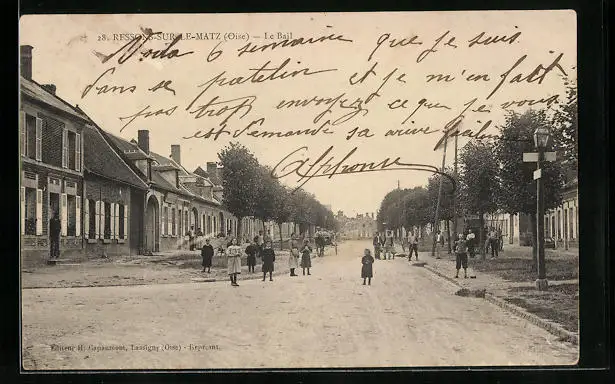 28. RESSONS-SUR-LE-MATZ (Oise) — Le Bail
Voila 6 semaine que je suis
dans se patelin et je m'en fait
pas trop envoyez ce que je vous
est demandé sa arive
Alphonse
Editeur H. Lassigny (Oise) - Reprcant.